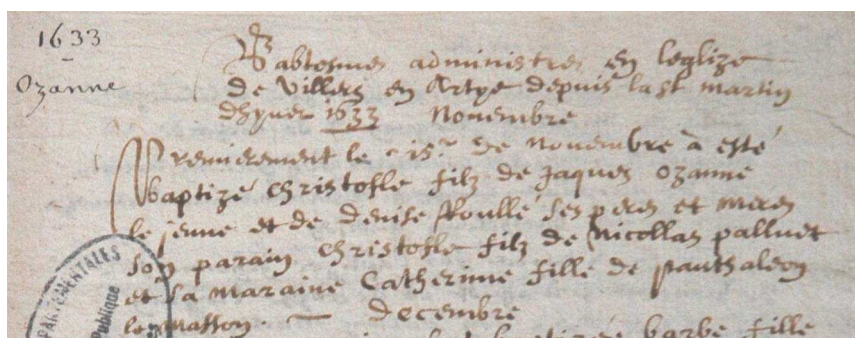 1633
Ozanne
Babtesmes administres en leglize
de Villers en Artye depuis la st martin
dhyver 1633 Novembre
Premierement le 15e de Novembre a esté
baptizé christofle filz de Jaques Ozanne
le jeune et de denise ses peres et meres
son parain christofle filz de Nicollas palluet
et sa maraine Catherine fille de panthaleon
le Masson. decembre
barbe fille
PARTEMENTALES
Publique